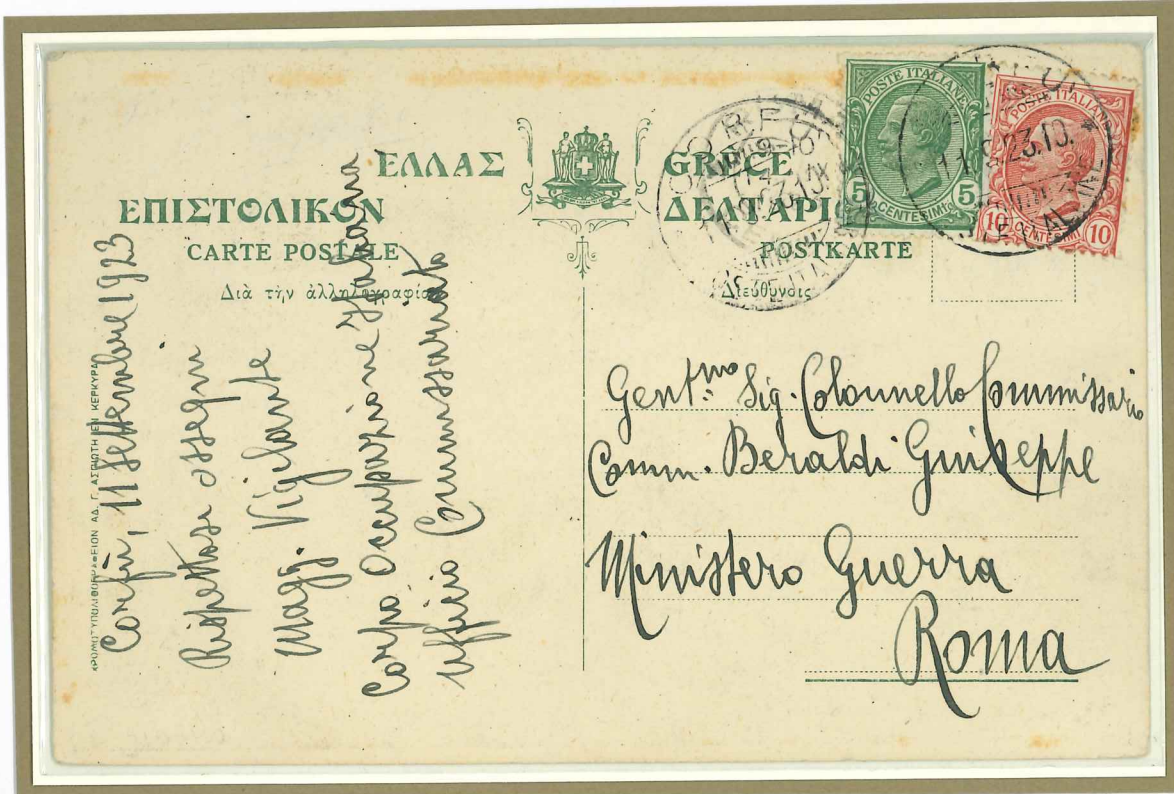 ΕΛΛΑΣ GRÈCE
ΕΠΙΣΤΟΛΙΚΟΝ ΔΕΛΤΑΡΙΟΝ
CARTE POSTALE POSTKARTE
Διὰ τὴν ἀλληλογραφίαν
Διεύθυνσις
POSTE ITALIANE
5 5
CENTESIMI
POSTE ITALIANE
10 10
CENTESIMI
CORFU
11.9.23.10
Corfù, 11 Settembre 1923
Rispettosi ossequi
Magg. Vigilante
Corpo Occupazione Italiana
Ufficio Commissariato
Gent.mo Sig. Colonnello Commissario
Comm. Beraldi Giuseppe
Ministero Guerra
Roma
ΑΣΠΙΩΤΗ ΕΝ ΚΕΡΚΥΡΑ